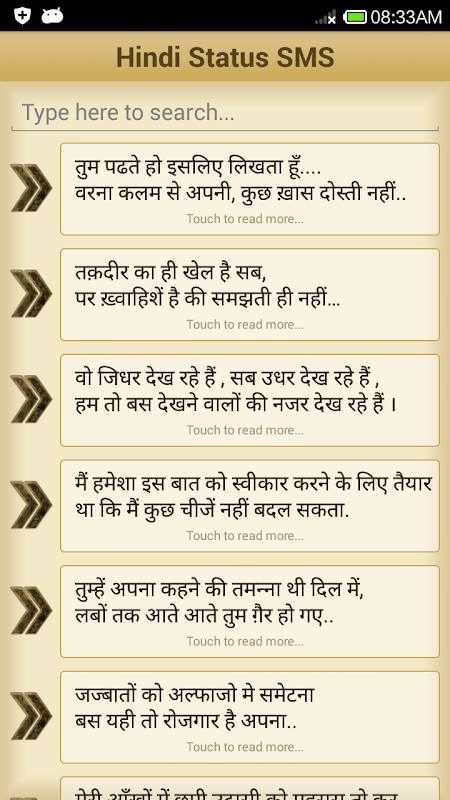 08:33AM
Hindi Status SMS
Type here to search...
तुम पढते हो इसलिए लिखता हूँ....
वरना कलम से अपनी, कुछ ख़ास दोस्ती नहीं..
Touch to read more...
तक़दीर का ही खेल है सब,
पर ख़्वाहिशें है की समझती ही नहीं...
Touch to read more...
वो जिधर देख रहे हैं , सब उधर देख रहे हैं ,
हम तो बस देखने वालों की नजर देख रहे हैं ।
Touch to read more...
मैं हमेशा इस बात को स्वीकार करने के लिए तैयार
था कि मैं कुछ चीजें नहीं बदल सकता.
Touch to read more...
तुम्हें अपना कहने की तमन्ना थी दिल में,
लबों तक आते आते तुम ग़ैर हो गए..
Touch to read more...
जज्बातों को अल्फाजो मे समेटना
बस यही तो रोजगार है अपना..
Touch to read more...